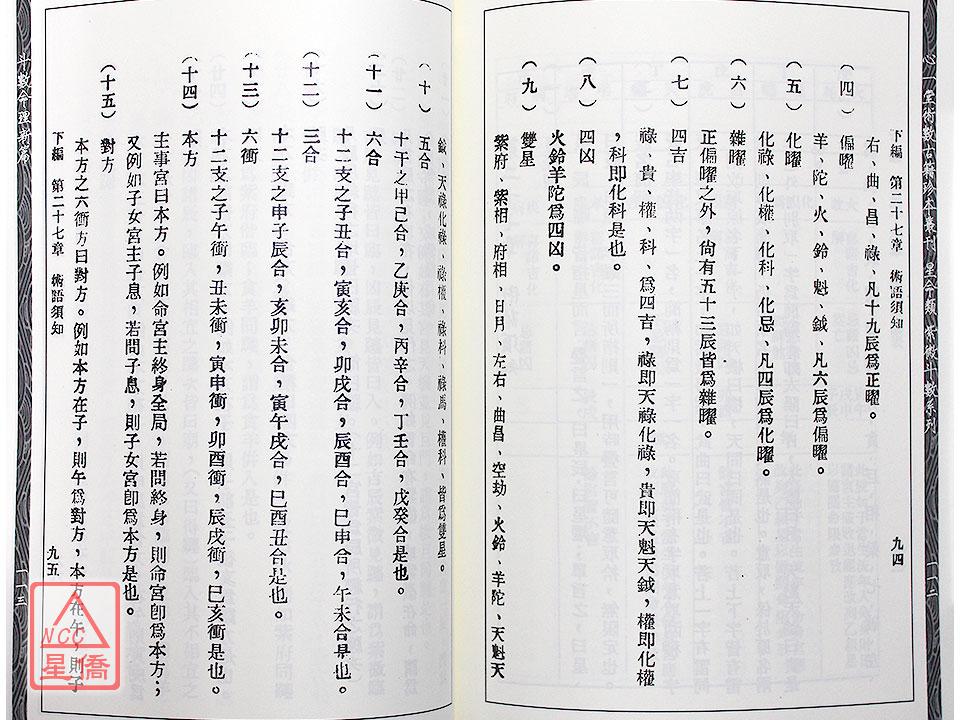 心一堂術數古籍珍本叢刊 星命類 紫微斗數系列
下編 第二十七章 術語須知
九四
右、曲、昌、祿、凡十九辰爲正曜。
(四) 偏曜
羊、陀、火、鈴、魁、鉞、凡六辰爲偏曜。
(五) 化曜
化祿、化權、化科、化忌、凡四辰爲化曜。
(六) 雜曜
正偏曜之外，尙有五十三辰皆爲雜曜。
(七) 四吉
祿、貴、權、科、爲四吉，祿即天祿化祿，貴即天魁天鉞，權即化權
，科即化科是也。
(八) 四凶
火鈴羊陀爲四凶。
(九) 雙星
紫府、紫相、府相、日月、左右、曲昌、空劫、火鈴、羊陀、天魁天
鉞、天祿化祿、祿權、祿科、祿馬、權科、皆爲雙星。
(十) 五合
十干之甲己合，乙庚合，丙辛合，丁壬合，戊癸合是也。
(十一) 六合
十二支之子丑合，寅亥合，卯戌合，辰酉合，巳申合，午未合是也。
(十二) 三合
十二支之申子辰合，亥卯未合，寅午戌合，巳酉丑合是也。
(十三) 六衝
十二支之子午衝，丑未衝，寅申衝，卯酉衝，辰戌衝，巳亥衝是也。
(十四) 本方
主事宮曰本方。例如命宮主終身全局，若問終身，則命宮卽爲本方；
又例如子女宮主子息，若問子息，則子女宮卽爲本方是也。
(十五) 對方
本方之六衝方曰對方。例如本方在子，則午爲對方，本方在午，則子
下編 第二十七章 術語須知
九五
NCC
星僑